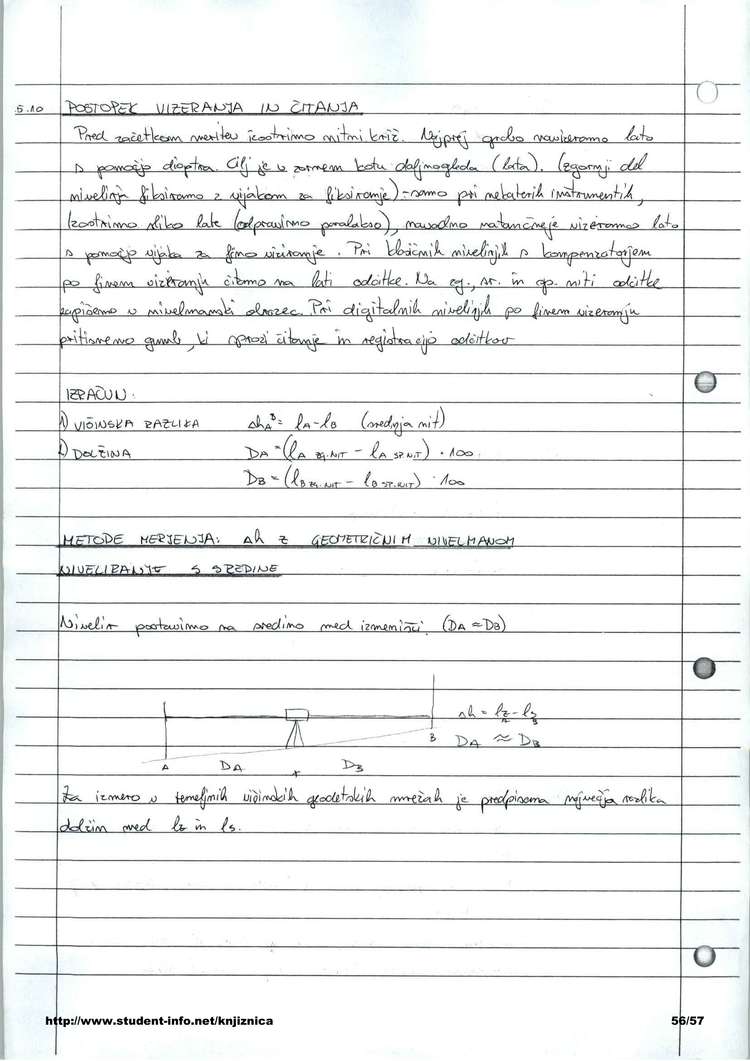 5.10 POSTOPEK VIZERANJA IN ČITANJA
Pred začetkom meritev izostrimo nitni križ. Najprej grobo naviziramo lato
s pomočjo dioptra. Cilj je v zornem kotu daljnogleda (lata). (zgornji del
nivelirja fiksiramo z vijakom za fiksiranje) - samo pri nekaterih instrumentih,
Izostrimo sliko late (odpravimo paralakso), navadno natančneje viziramo lato
s pomočjo vijaka za fino viziranje. Pri klasičnih nivelirjih s kompenzatorjem
po finem viziranju čitamo na lati odčitke. Na zg., sr. in sp. niti odčitke
zapišemo v nivelmanski obrazec. Pri digitalnih nivelirjih po finem vizeranju
pritisnemo gumb, ki sproži čitanje in registracijo odčitkov
IZRAČUN:
1) VIŠINSKA RAZLIKA Δh_A^B = l_A - l_B (srednja nit)
2) DOLŽINA D_A = (l_A ZG.NIT - l_A SP.NIT) · 100
D_B = (l_B ZG.NIT - l_B SP.NIT) · 100
METODE MERJENJA: Δh Z GEOMETRIČNIM NIVELMANOM
NIVELIRANJE S SREDINE
Nivelir postavimo na sredino med izmenišči (D_A ≈ D_B)
Δh = l_Z - l_S
A B
B D_A ≈ D_B
A D_A D_B
Za izmero v temeljnih višinskih geodetskih mrežah je predpisana največja razlika
dolžin med l_Z in l_S.
http://www.student-info.net/knjiznica 56/57